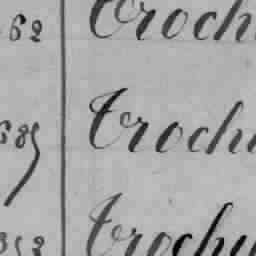 62 Troch
685 Troch
352 Trochu